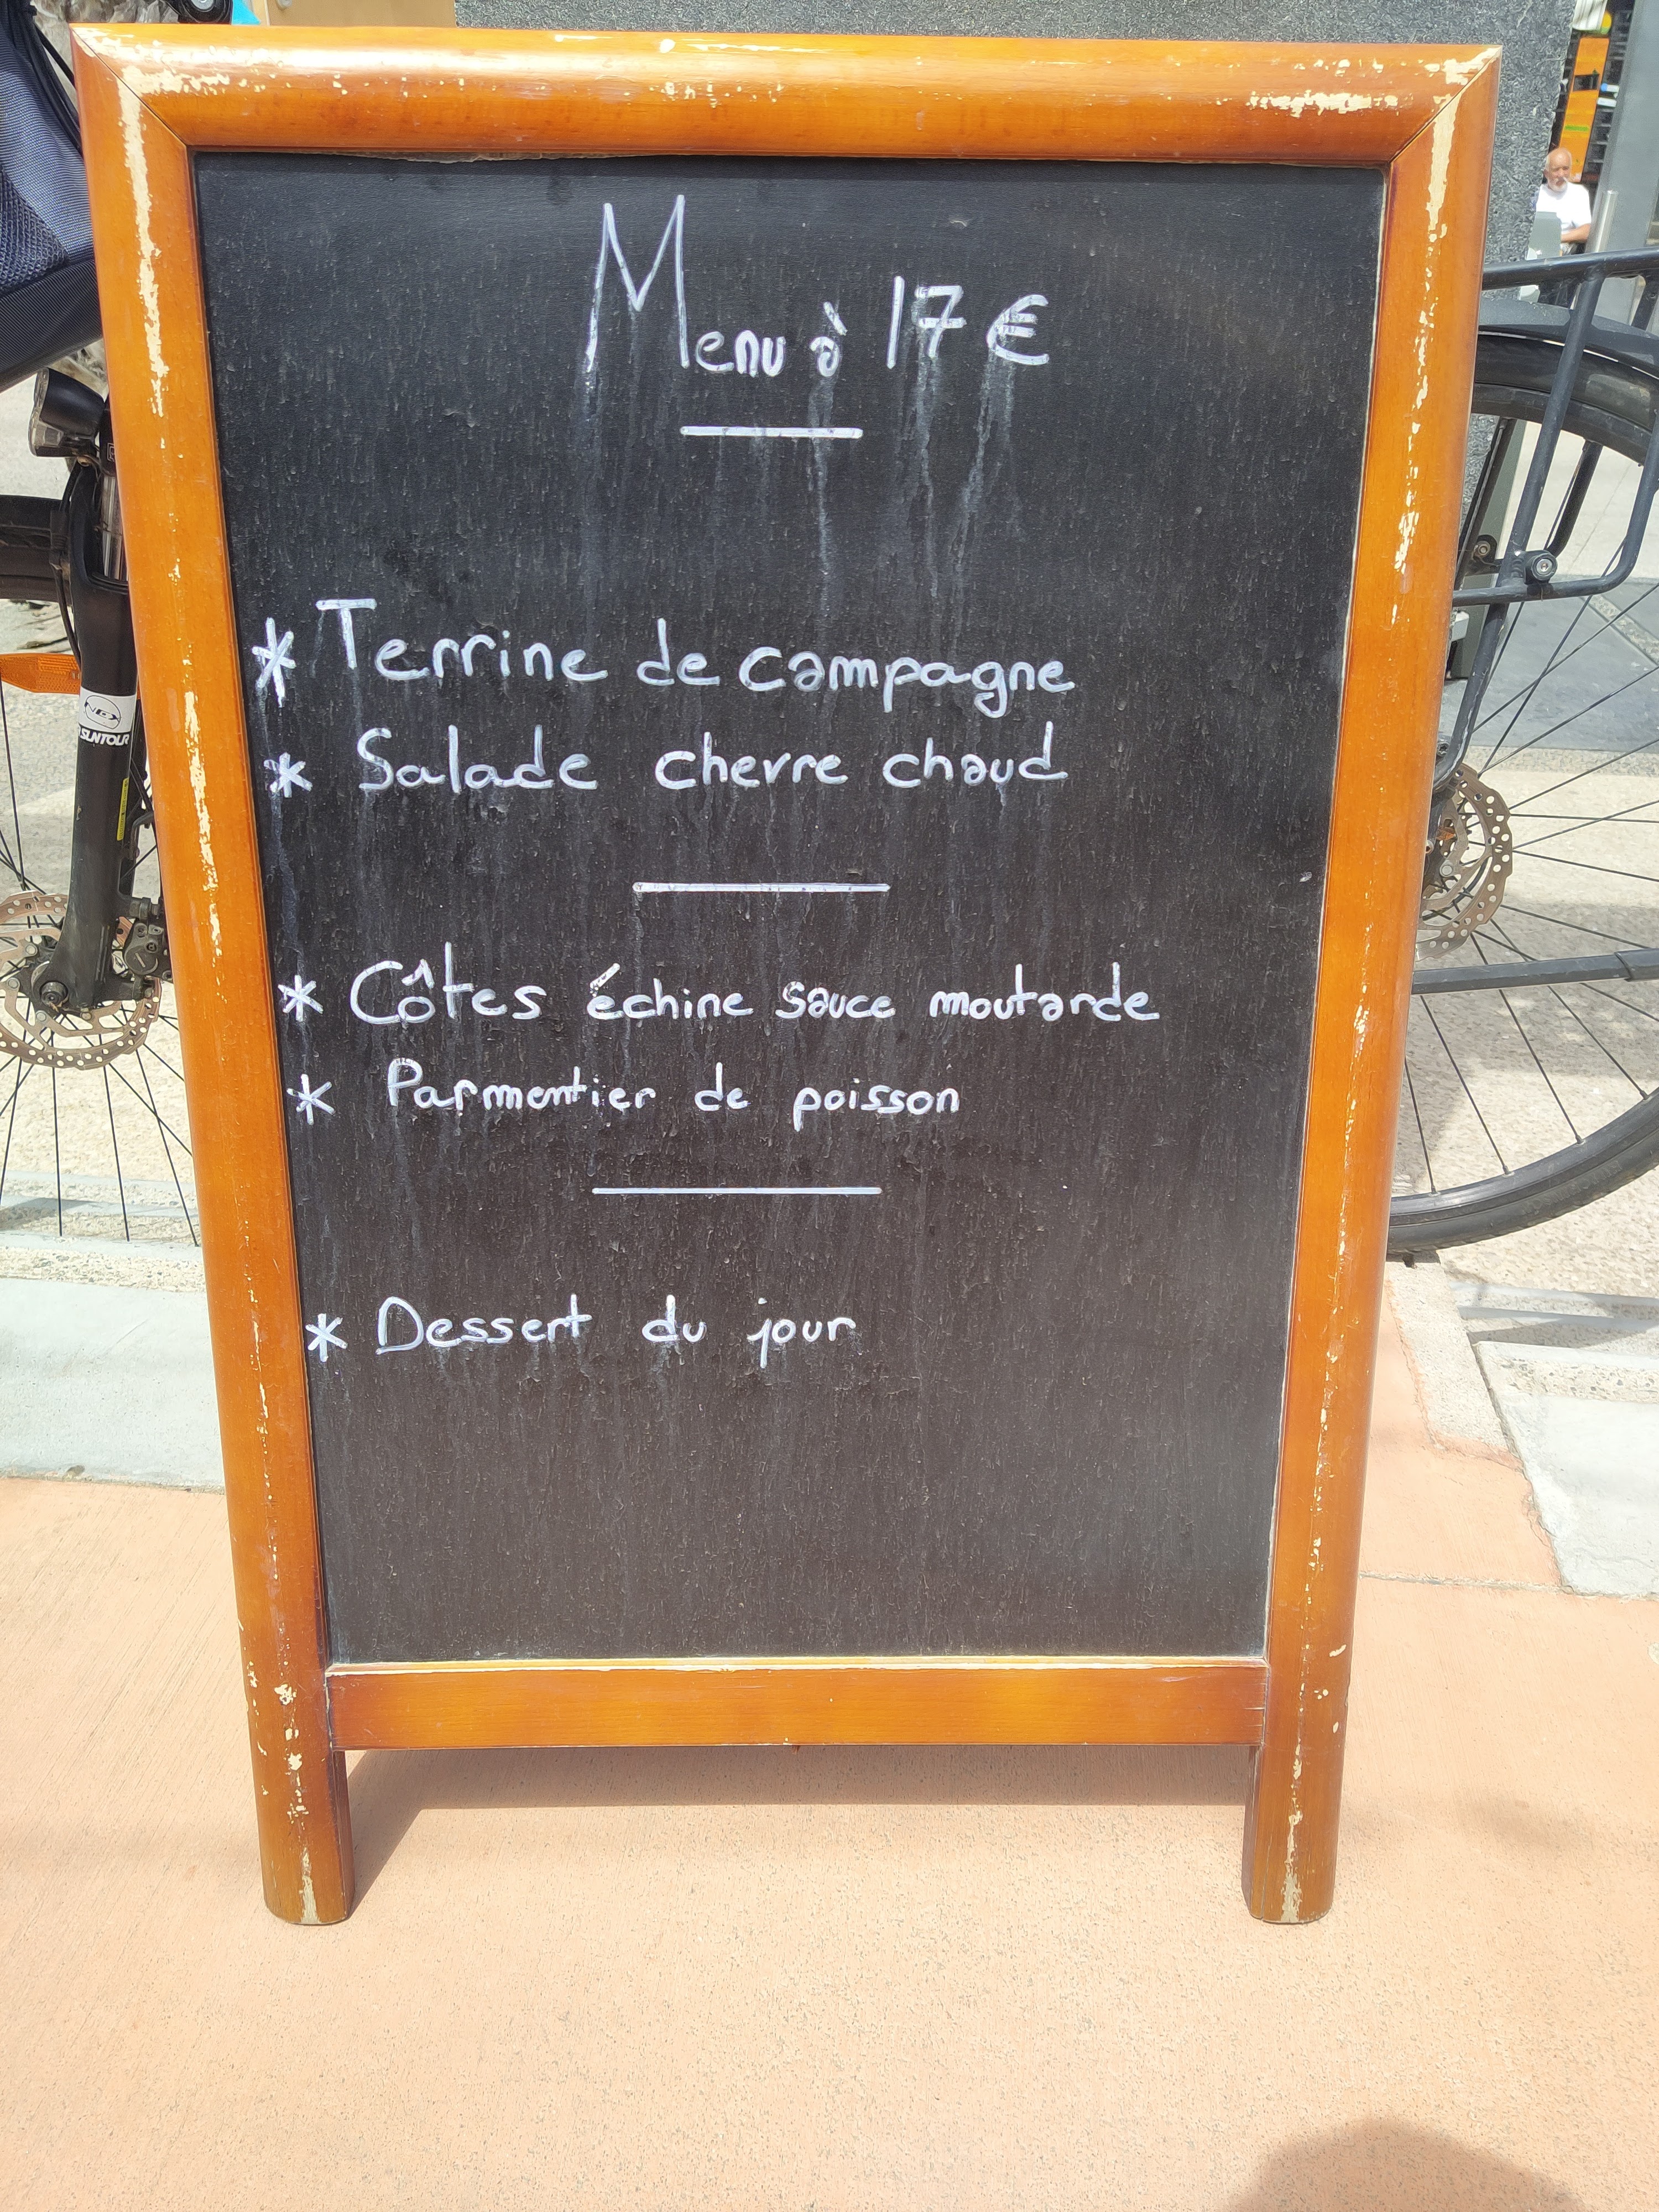 Menu à 17 €
* Terrine de campagne
* Salade chevre chaud
* Côtes échine sauce moutarde
* Parmentier de poisson
* Dessert du jour
SUNTOUR